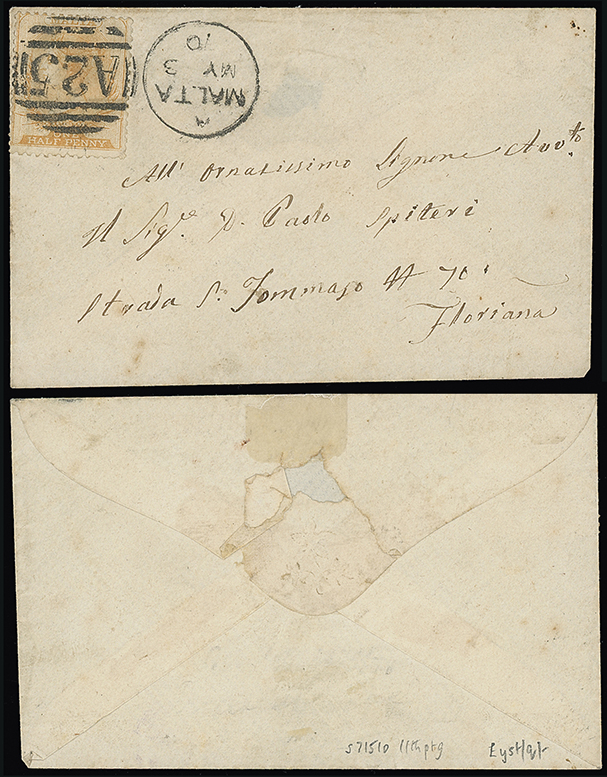 MALTA
A25
HALF PENNY
A
MALTA
MY 3
70
All' Ornatissimo Signore Avvto
Il Sigre D. Paolo Spiteri
Strada S. Tommaso N 70.
Floriana
S71510 11th ptg